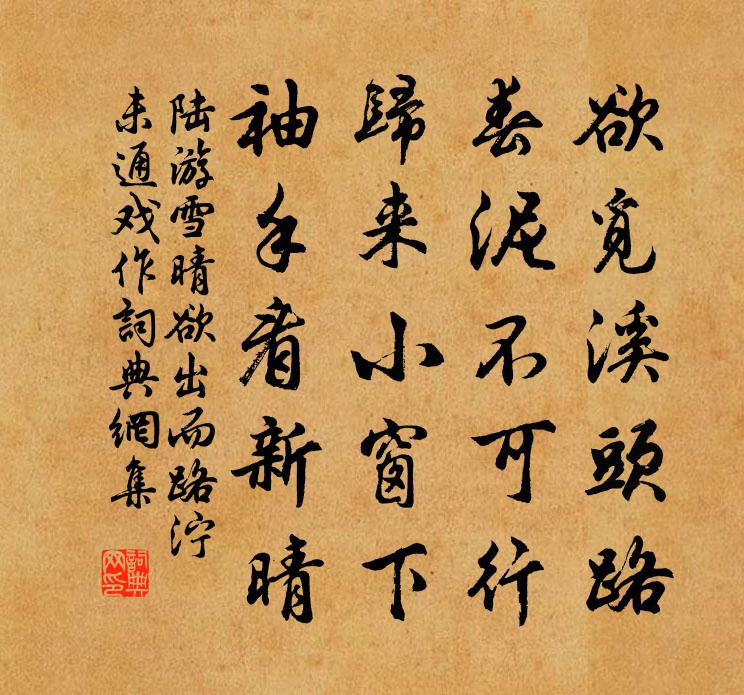 欲覓溪頭路
春泥不可行
歸来小窗下
袖手看新晴
陆游雪晴欲出而路泞
未通戏作詞典網集
詞典網印